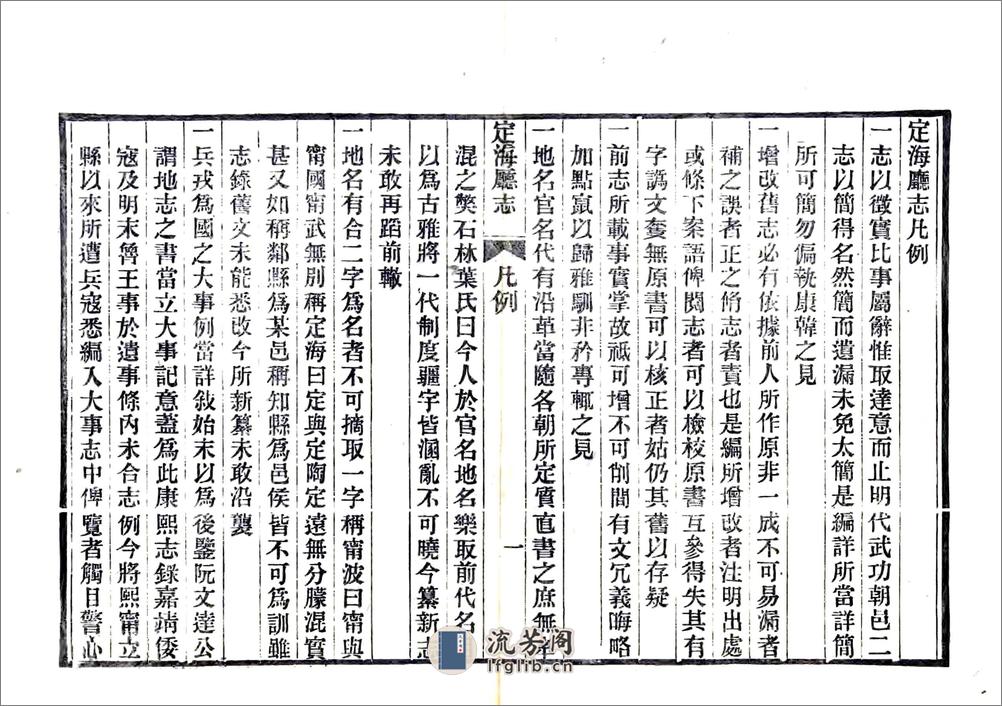 定海廳志凡例
一志以徵實比事屬辭惟取達意而止明代武功朝邑二
志以簡得名然簡而遺漏未免太簡是編詳所當詳簡
所可簡勿偏執康韓之見
一增改舊志必有依據前人所作原非一成不可易漏者
補之誤者正之脩志者責也是編所增改者注明出處
或條下案語俾閱志者可以檢校原書互參得失其有
字譌文奪無原書可以核正者姑仍其舊以存疑
一前志所載事實掌故祗可增不可削間有文冗義晦略
加點竄以歸雅馴非矜專輒之見
一地名官名代有沿革當隨各朝所定質直書之庶無
定海廳志
凡例
一
混之獘石林葉氏曰今人於官名地名樂取前代名
以為古雅將一代制度疆字皆溷亂不可曉今纂新志
未敢再蹈前轍
一地名有合二字為名者不可摘取一字稱甯波曰甯與
甯國甯武無別稱定海曰定與定陶定遠無分朦混實
甚又如稱鄰縣為某邑稱知縣為邑侯皆不可為訓雖
志錄舊文未能悉改今所新纂未敢沿襲
一兵戎為國之大事例當詳敘始末以為後鑒阮文達公
謂地志之書當立大事記意蓋為此康熙志錄嘉靖倭
寇及明末魯王事於遺事條內未合志例今將熙甯立
縣以來所遭兵寇悉編入大事志中俾覽者觸目警心
流芳阁
lfglib.cn